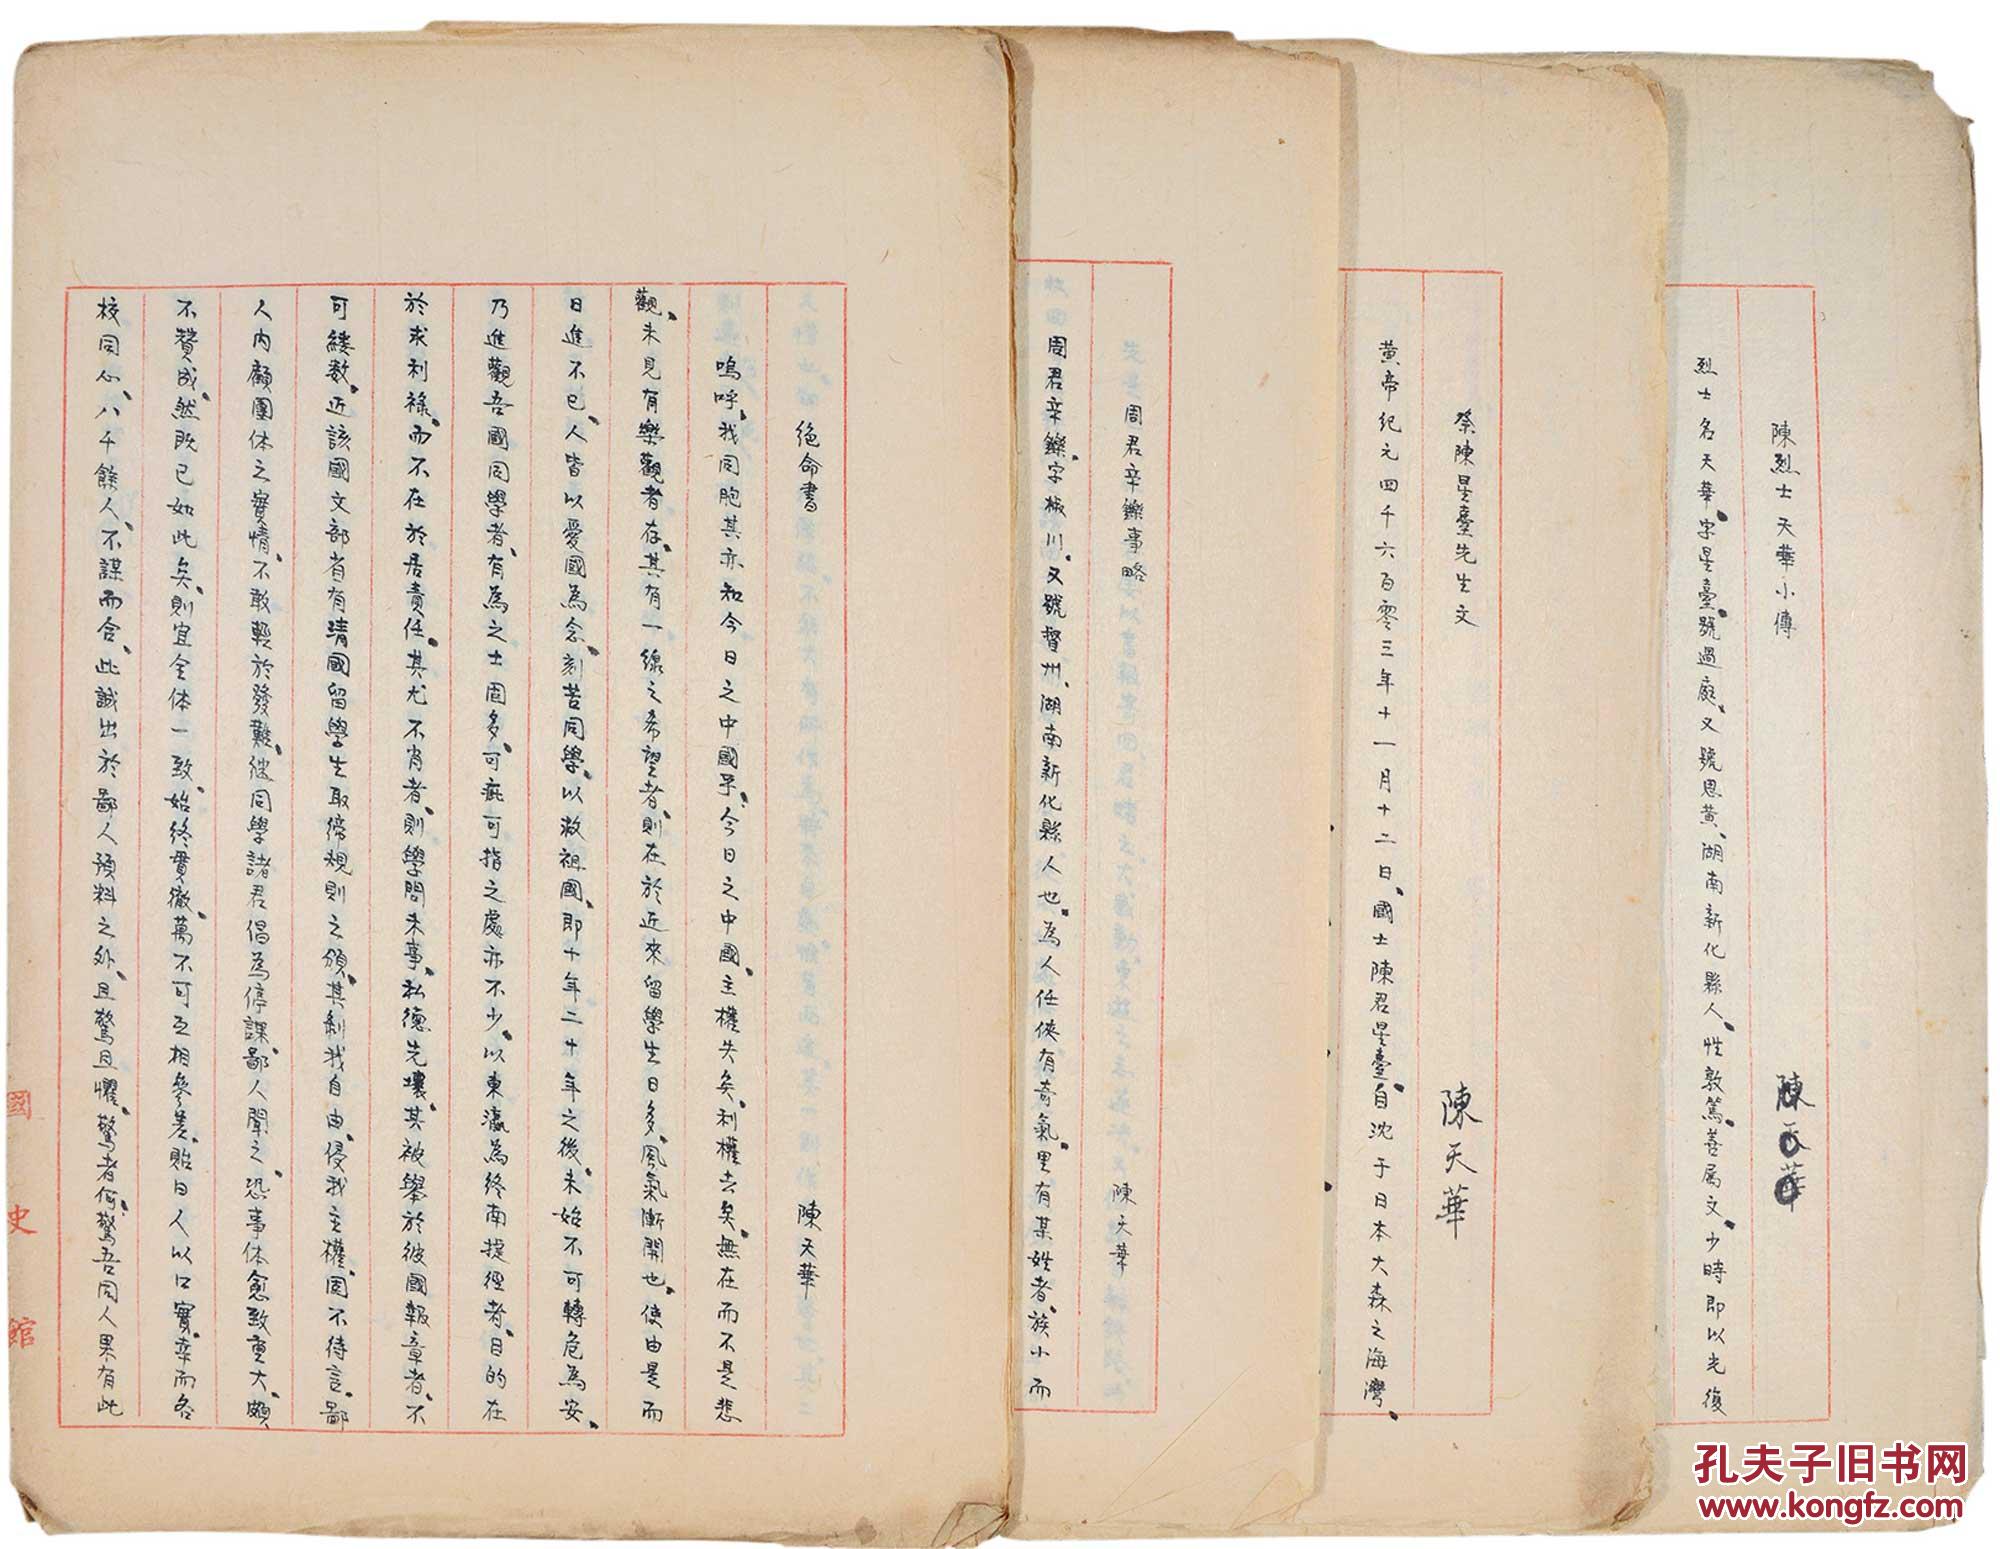 陳烈士天華小傳
陳天華
烈士名天華、字星臺、號過庭、又號思黃、湖南新化縣人、性敦篤、善属文、少時即以光復
祭陳星臺先生文
陳天華
黃帝紀元四千六百零三年十一月十二日、國士陳君星臺、自沈于日本大森之海灣、
周君辛鑠事略
陳天華
周君辛鑠、字椒川、又號督州、湖南新化縣人也、為人任俠有奇氣、里有某姓者、族小而
絕命書
陳天華
嗚呼、我同胞其亦知今日之中國乎、今日之中國、主權失矣、利權去矣、無在而不是悲
觀、未見有樂觀者存、其有一線之希望者、則在於近來留學生日多、風氣漸開也、使由是而
日進不已、人皆以愛國為念、刻苦同學、以救祖國、即十年二十年之後、未始不可轉危為安、
乃進觀吾國同學者、有為之士固多、可疵可指之處亦不少、以東瀛為終南捷徑者、目的在
於求利祿、而不在於居責任、其尤不肖者、則學問未事、私德先壞、其被舉於彼國報章者、不
可縷数、近該國文部省有清國留學生取締規則之頒、其剝我自由、侵我主權、固不待言、鄙
人內顧團体之實情、不敢輕於發難、繼同學諸君倡為停課、鄙人聞之、恐事体愈致重大、頗
不贊成、然既已如此矣、則宜全体一致、始終貫徹、萬不可互相參差、貽日人以口實、幸而各
校同心、八千餘人、不謀而合、此誠出於鄙人預料之外、且驚且懼、驚者何、驚吾同人果有此
國史館
孔夫子旧书网
www.kongfz.com